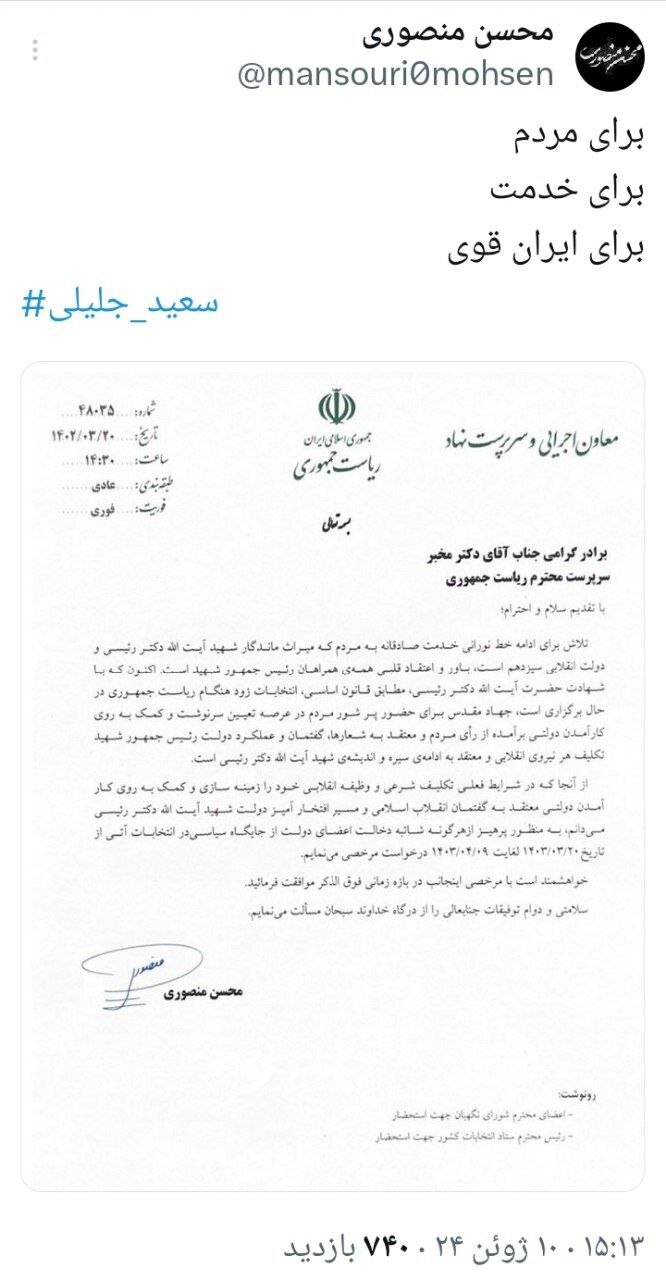 محسن منصوری
@mansouri0mohsen
برای مردم
برای خدمت
برای ایران قوی
#سعید_جلیلی
معاون اجرایی و سرپرست نهاد
جمهوری اسلامی ایران
ریاست جمهوری
شماره: ۴۸۰۳۵
تاریخ: ۱۴۰۲/۰۳/۲۰
ساعت: ۱۴:۳۰
طبقه‌بندی: عادی
فوریت: فوری
بسمه تعالی
برادر گرامی جناب آقای دکتر مخبر
سرپرست محترم ریاست جمهوری
با تقدیم سلام و احترام؛
تلاش برای ادامه خط نورانی خدمت صادقانه به مردم که میراث ماندگار شهید آیت الله دکتر رئیسی و
دولت انقلابی سیزدهم است، باور و اعتقاد قلبی همه‌ی همراهان رئیس جمهور شهید است. اکنون که با
شهادت حضرت آیت الله دکتر رئیسی، مطابق قانون اساسی، انتخابات زود هنگام ریاست جمهوری در
حال برگزاری است، جهاد مقدس برای حضور پر شور مردم در عرصه تعیین سرنوشت و کمک به روی
کارآمدن دولتی برآمده از رأی مردم و معتقد به شعارها، گفتمان و عملکرد دولت رئیس جمهور شهید
تکلیف هر نیروی انقلابی و معتقد به ادامه‌ی سیره و اندیشه‌ی شهید آیت الله دکتر رئیسی است.
از آنجا که در شرایط فعلی تکلیف شرعی و وظیفه انقلابی خود را زمینه سازی و کمک به روی کار
آمدن دولتی معتقد به گفتمان انقلاب اسلامی و مسیر افتخار آمیز دولت شهید آیت الله دکتر رئیسی
می‌دانم، به منظور پرهیز ازهرگونه شائبه دخالت اعضای دولت از جایگاه سیاسی‌در انتخابات آتی از
تاریخ۱۴۰۳/۰۳/۲۰ لغایت ۱۴۰۳/۰۴/۰۹ درخواست مرخصی می‌نمایم.
خواهشمند است با مرخصی اینجانب در بازه زمانی فوق الذکر موافقت فرمائید.
سلامتی و دوام توفیقات جنابعالی را از درگاه خداوند سبحان مسألت می‌نمایم.
محسن منصوری
رونوشت:
- اعضای محترم شورای نگهبان جهت استحضار
- رئیس محترم ستاد انتخابات کشور جهت استحضار
۱۵:۱۳ · ۱۰ ژوئن ۲۴ · ۷۴۰ بازدید